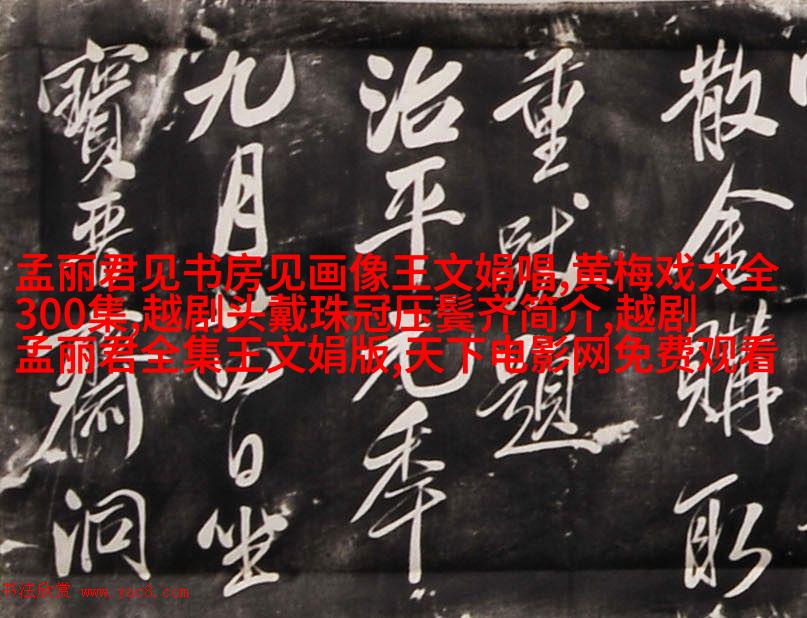 散金購取
重跋題
治平元秊
九月四日坐
寶晋齋洞
孟丽君见书房见画像王文娟唱,黄梅戏大全
300集,越剧头戴珠冠压鬓齐简介,越剧
孟丽君全集王文娟版,天下电影网免费观看
书法欣赏 www.yac8.com